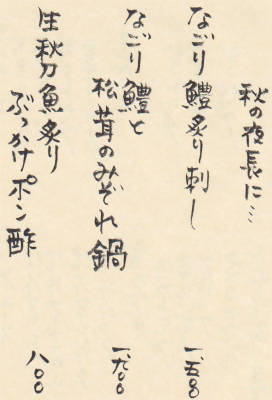 秋の夜長に…
なごり鱧炙り刺し 一、五〇〇
なごり鱧と
松茸のみぞれ鍋 一、九〇〇
生秋刀魚炙り
ぶっかけポン酢 八〇〇